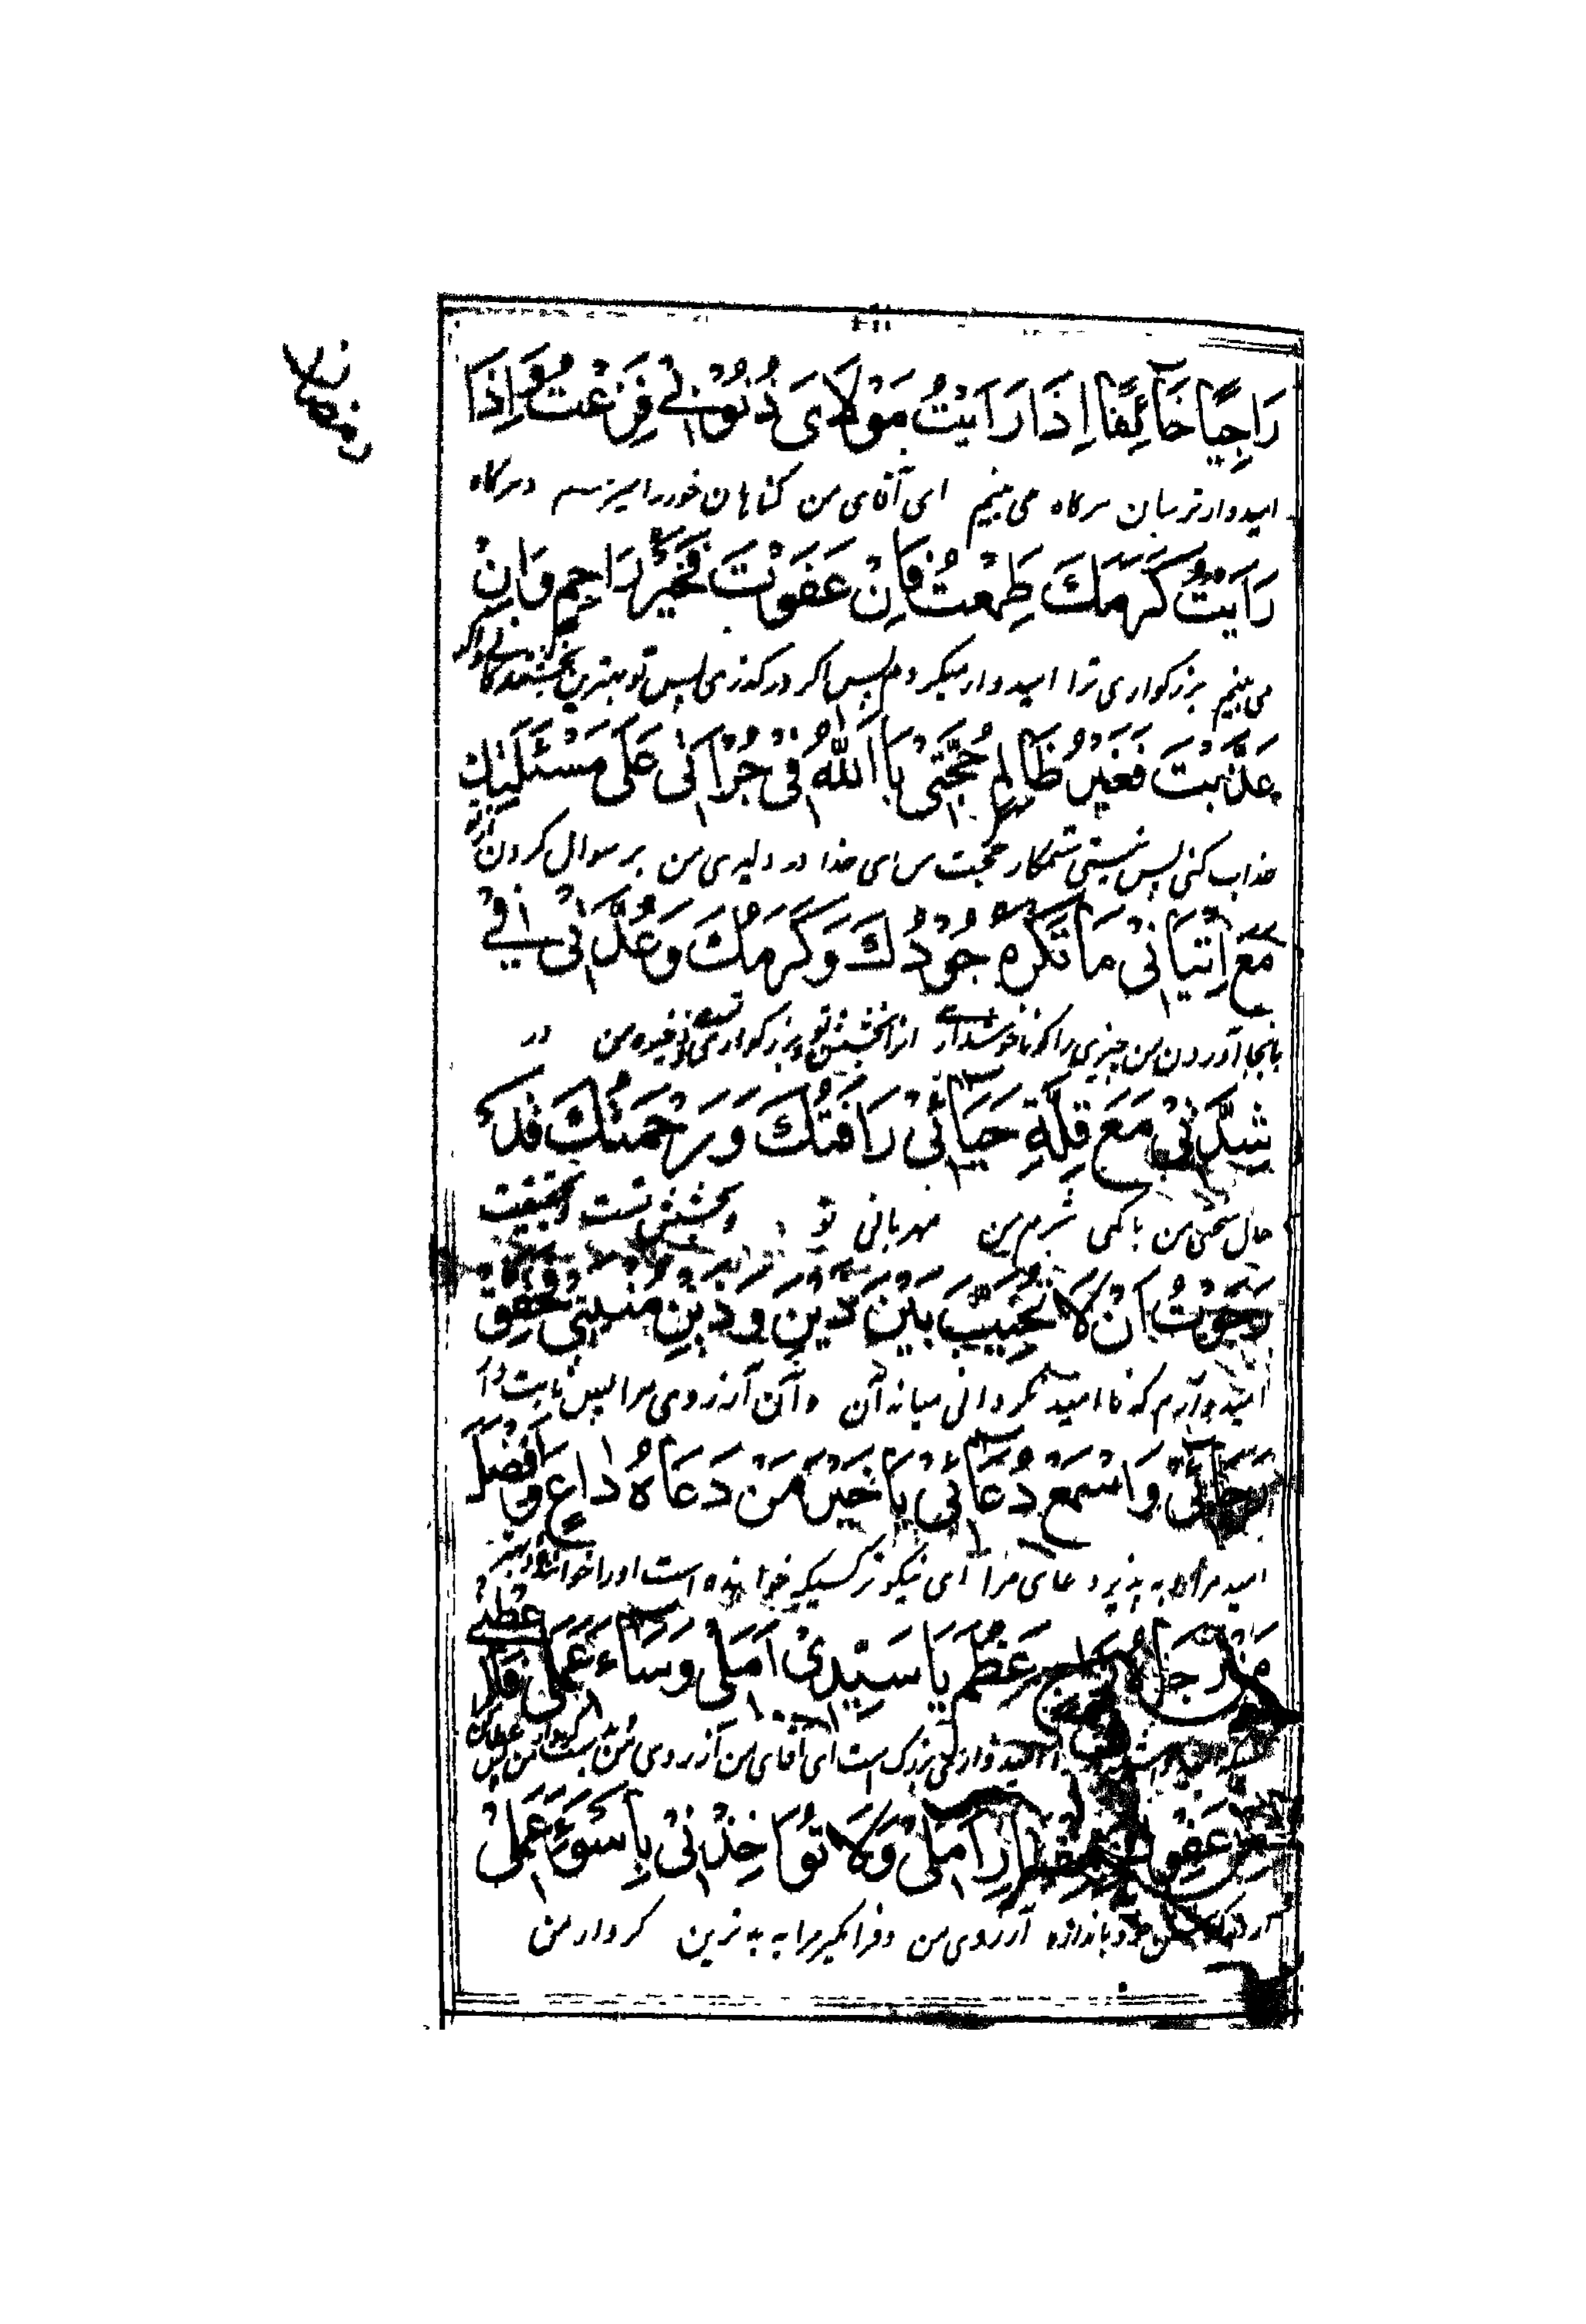 رمضان
رَاجِيًا خَآئِفًا اِذَا رَاَيْتُ مَوْلَايَ ذُنُوْبِيْ فَزِعْتُ وَاِذَا
امیدوار ترسان هرگاه می بینم ای آقای من گناهان خود را میترسم و هرگاه
رَاَيْتُ كَرَمَكَ طَمِعْتُ فَاِنْ عَفَوْتَ فَخَيْرُ رَاحِمٍ وَاِنْ
می بینم بزرگواری ترا امیدوار میگردم پس اگر درگذری پس تو بهترین
عَذَّبْتَ فَغَيْرُ ظَالِمٍ حُجَّتِيْ يَا اَللّٰهُ فِيْ جُرْاَتِيْ عَلٰى مَسْئَلَتِكَ
عذاب کنی پس نیستی ستمکار حجت من ای خدا در دلیری من بر سوال کردن از تو
مَعَ اِتْيَانِيْ مَا تَكْرَهُ جُوْدُكَ وَكَرَمُكَ وَعُدَّتِيْ فِيْ
بابجا آوردن من چیزی را که ناخوش داری از بخشش تو و بزرگواری تو ذخیره من در
شِدَّتِيْ مَعَ قِلَّةِ حَيَائِيْ رَافَتُكَ وَرَحْمَتُكَ وَقَدْ
حال سختی من با کمی شرم من مهربانی تو و بخشش تست و بتحقیق
رَجَوْتُ اَنْ لَا تُخَيِّبَ بَيْنَ ذَيْنِ وَذَيْنِ مُنْيَتِيْ فَحَقِّقْ
امیدوارم که نا امید نگردانی میانه آن و آن آرزوی مرا پس ثابت دار
رَجَائِيْ وَاسْمَعْ دُعَائِيْ يَا خَيْرَ مَنْ دَعَاهُ دَاعٍ وَاَفْضَلَ
امید مرا و به پذیر دعای مرا ای نیکوتر کسیکه خوانده است او را
مَنْ رَجَاهُ رَاجٍ عَظُمَ يَا سَيِّدِيْ اَمَلِيْ وَسَاءَ عَمَلِيْ فَاَعْطِنِيْ
امیدواری بزرگ است ای آقای من آرزوی من
مِنْ عَفْوِكَ بِمِقْدَارِ اَمَلِيْ وَلَا تُؤَاخِذْنِيْ بِاَسْوَءِ عَمَلِيْ
خود باندازه آرزوی من و فرا مگیر مرا به بدترین کردار من